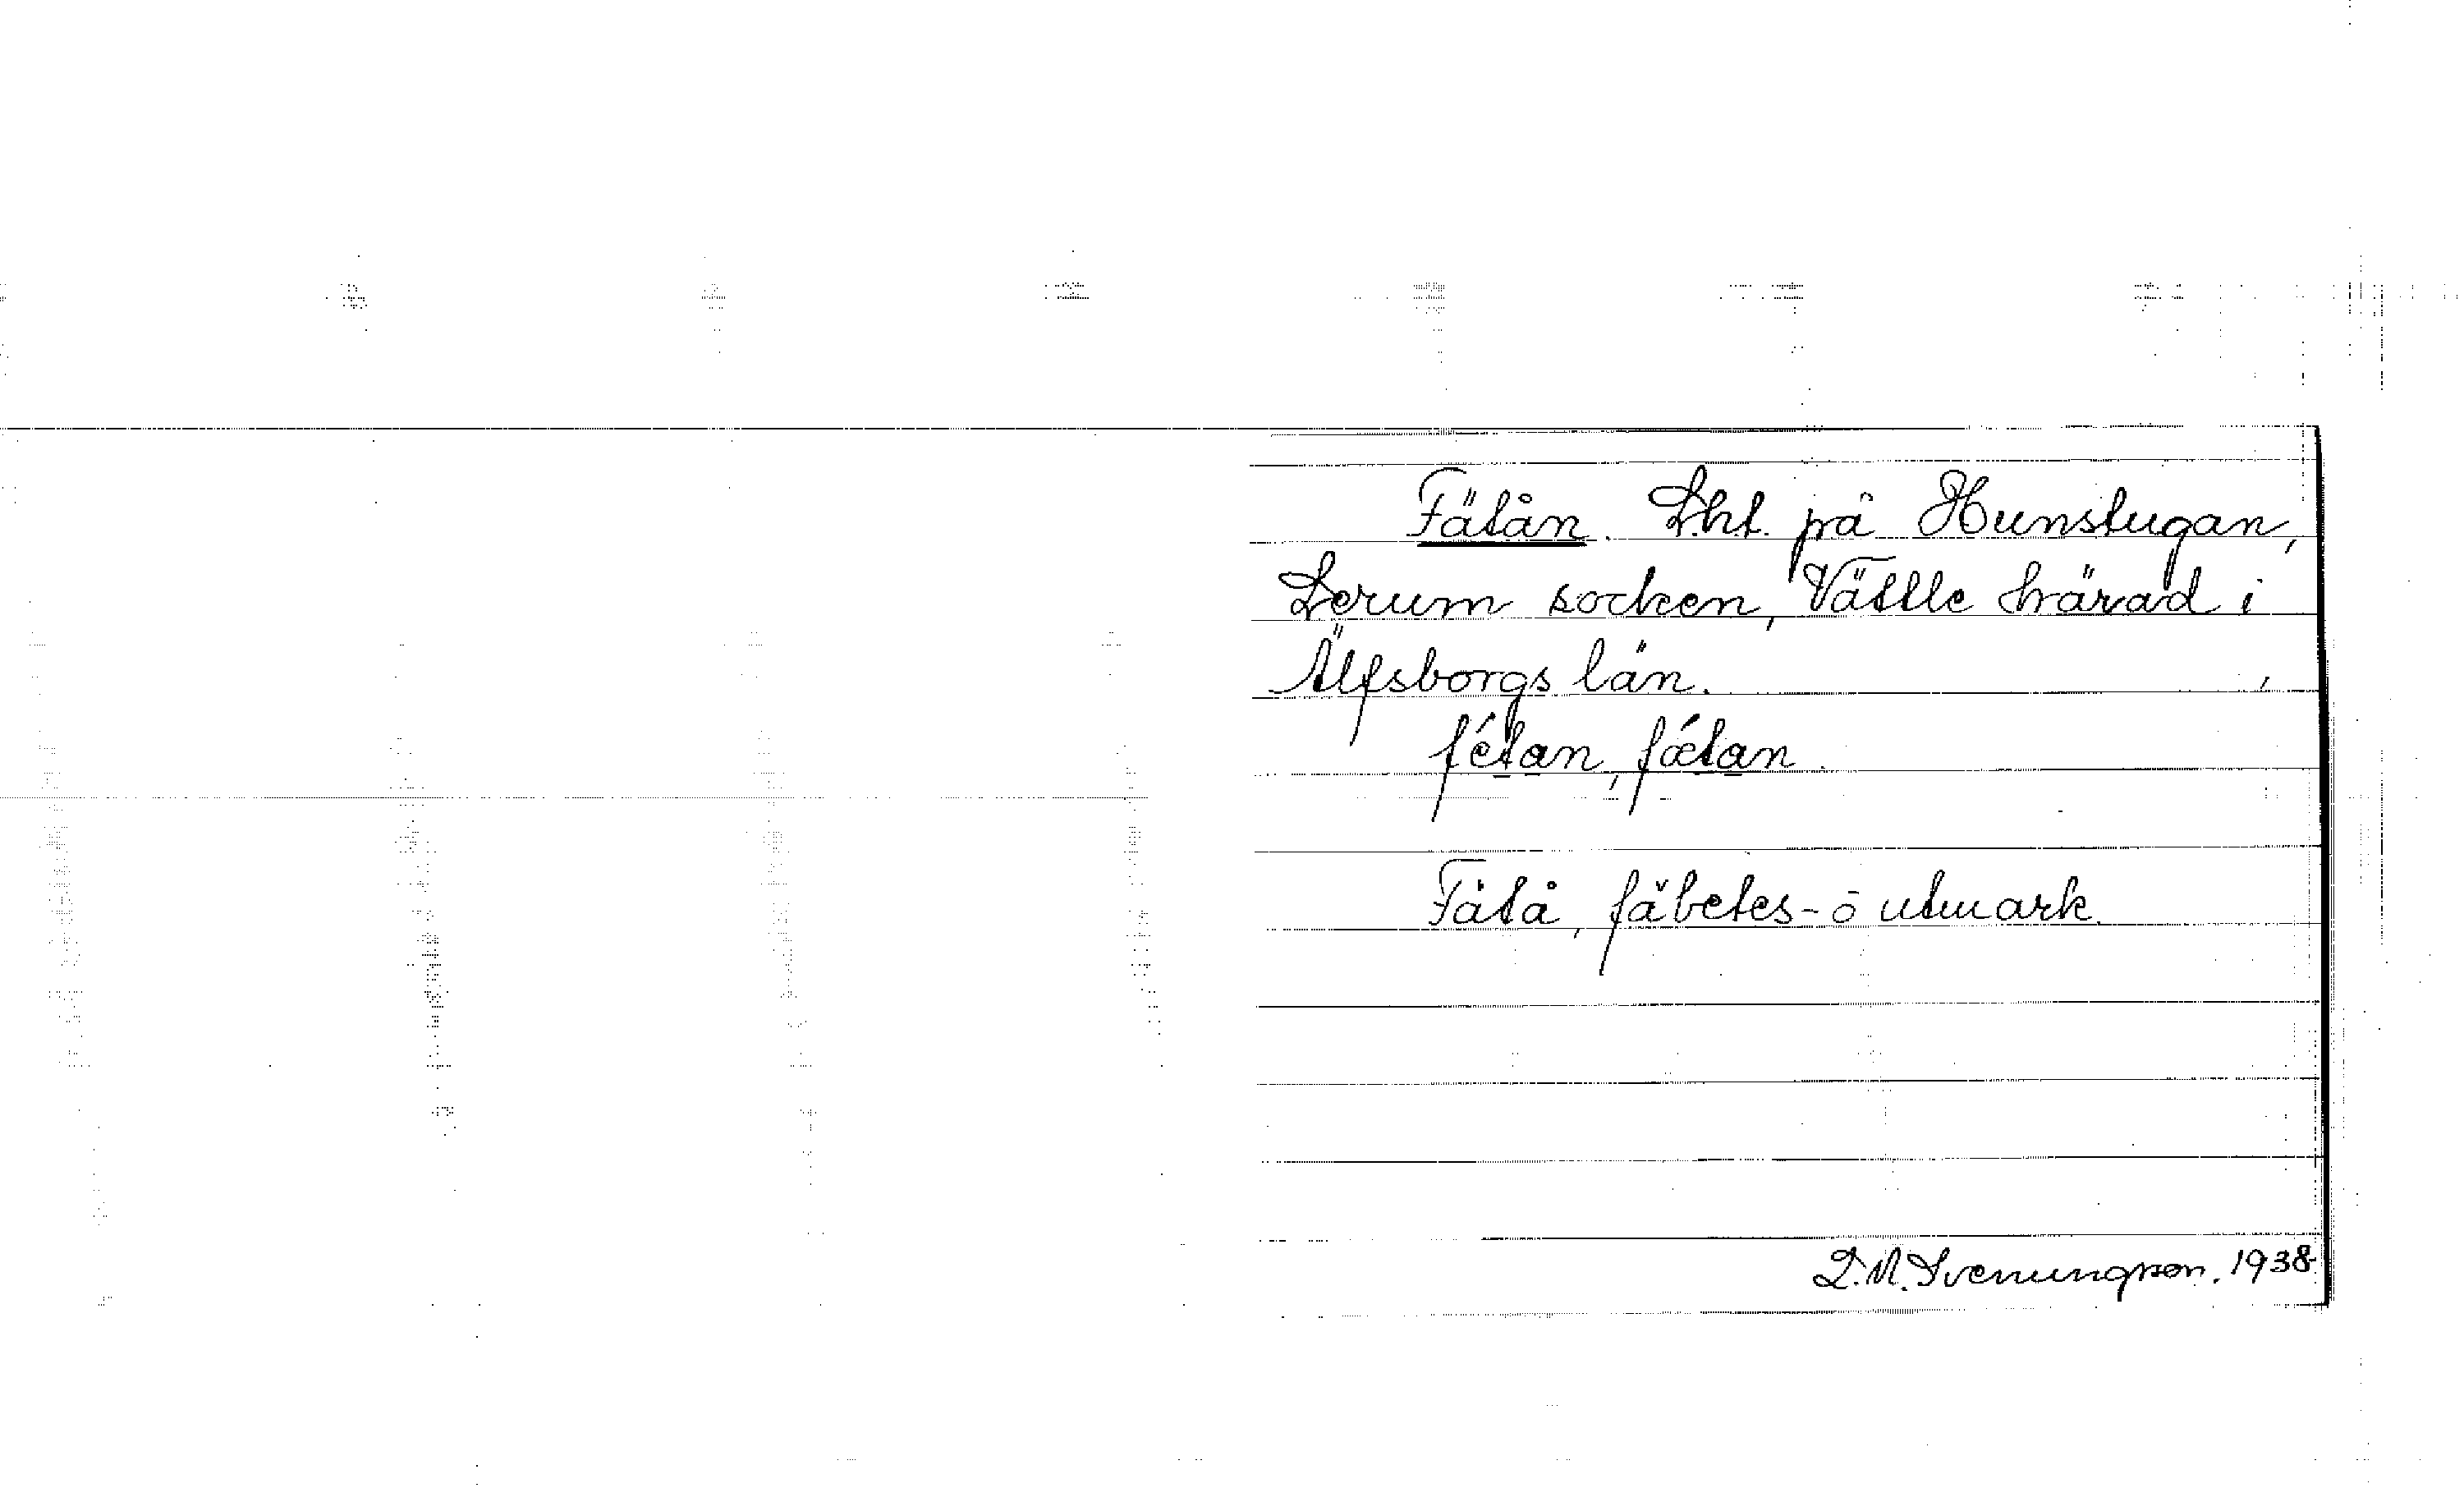 Fätån. Lht. på Hunstugan,
Lerum socken, Vättle härad i
Älfsborgs län.
fétan, fǽtan.
Fätå, fäbetes- o utmark.
D.M. Svenungsson. 1938